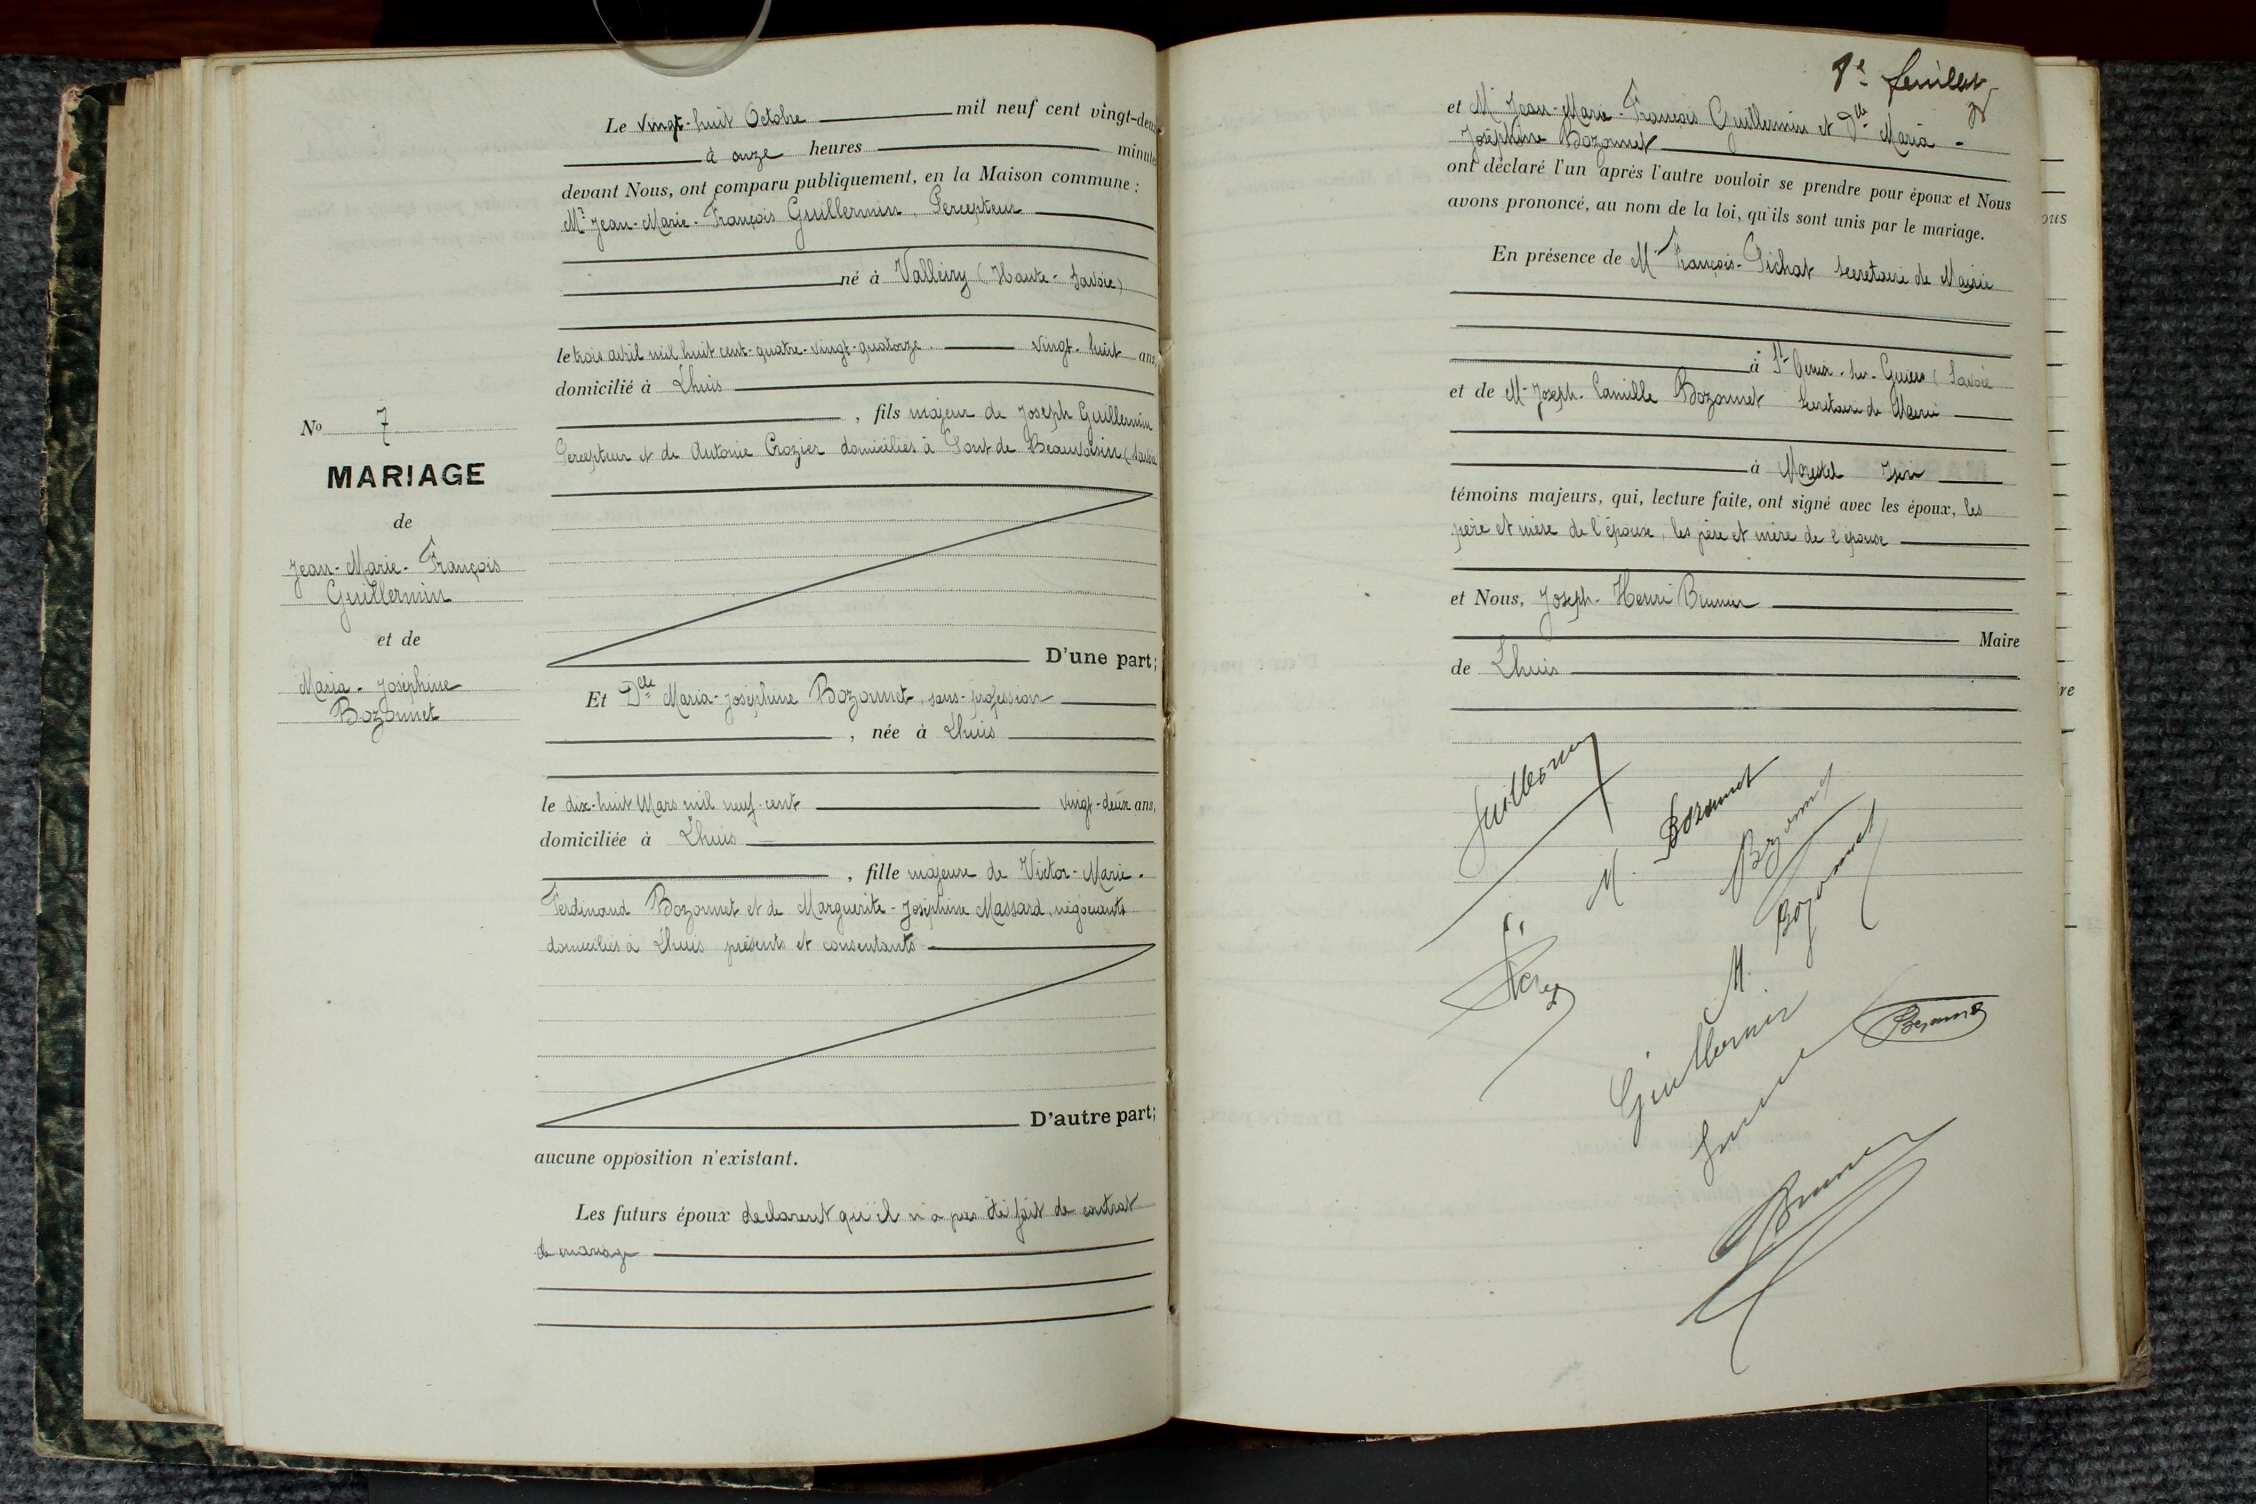 Le vingt-huit Octobre mil neuf cent vingt-deux
à onze heures minute
devant Nous, ont comparu publiquement, en la Maison commune :
Mr Jean-Marie-François Guillermin, Percepteur
né à Valleiry (Haute-Savoie)
le trois avril mil huit cent-quatre-vingt-quatorze. vingt-huit ans,
domicilié à Lhuis
, fils majeur de Joseph Guillermin
Percepteur et de Antonie Crozier domiciliés à Pont de Beauvoisin (Savoie
No 7
MARIAGE
de
Jean-Marie-François
Guillermin
et de
Maria-Joséphine
Bozonnet
D'une part;
Et Delle Maria-Joséphine Bozonnet, sans-profession
, née à Lhuis
le dix-huit Mars mil neuf-cent vingt-deux ans,
domiciliée à Lhuis
, fille majeure de Victor-Marie-
Ferdinand Bozonnet et de Marguerite-Joséphine Massard, négociants
domiciliés à Lhuis présents et consentants
D'autre part;
aucune opposition n'existant.
Les futurs époux declarent qu'il n'a pas été fait de contrat
de mariage
8e feuillet
et Mr Jean-Marie-François Guillermin et Dlle Maria-
Joséphine Bozonnet
ont déclaré l'un après l'autre vouloir se prendre pour époux et Nous
avons prononcé, au nom de la loi, qu'ils sont unis par le mariage.
En présence de Mr François-Pichat Secretaire de Mairie
à St-Genix-sur-Guiers (Savoie
et de Mr Joseph-Camille Bozonnet Secretaire de Mairie
à Morestel Isère
témoins majeurs, qui, lecture faite, ont signé avec les époux, les
père et mère de l'épouse, les père et mère de l'épouse
et Nous, Joseph-Henri Brunier
Maire
de Lhuis
Guillermin
M. Bozonnet
Bozonnet
M. Bozonnet
Guillermin
Bozonnet
Brunier
ous
re